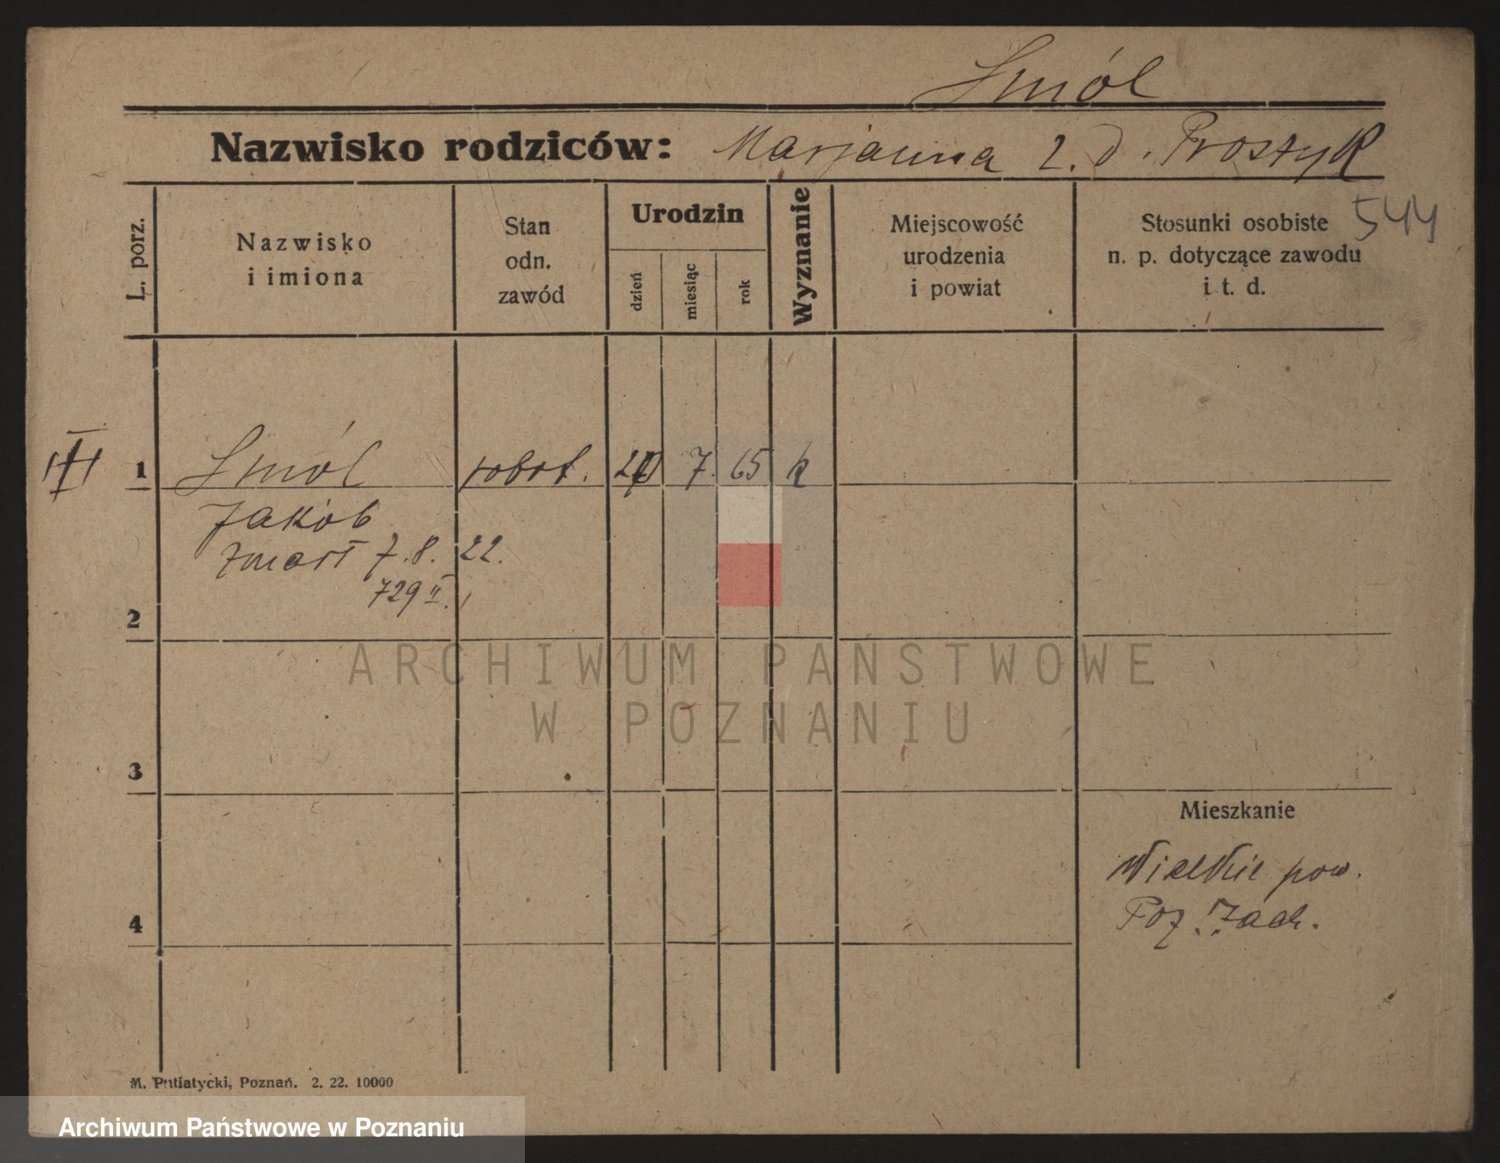 Smól
Nazwisko rodziców: Marjanna z. d. Prostyk
L. porz.
Nazwisko
i imiona
Stan
odn.
zawód
Urodzin
dzień
miesiąc
rok
Wyznanie
Miejscowość
urodzenia
i powiat
Stosunki osobiste
n. p. dotyczące zawodu
i t. d.
544
1 Smól robot. 7. 65 k
Jakób
zmarł 7.8.22.
729 II.
2
ARCHIWUM PAŃSTWOWE
W POZNANIU
3
Mieszkanie
Wielkie pow.
Poz. Zach.
4
M. Putiatycki, Poznań. 2. 22. 10000
Archiwum Państwowe w Poznaniu